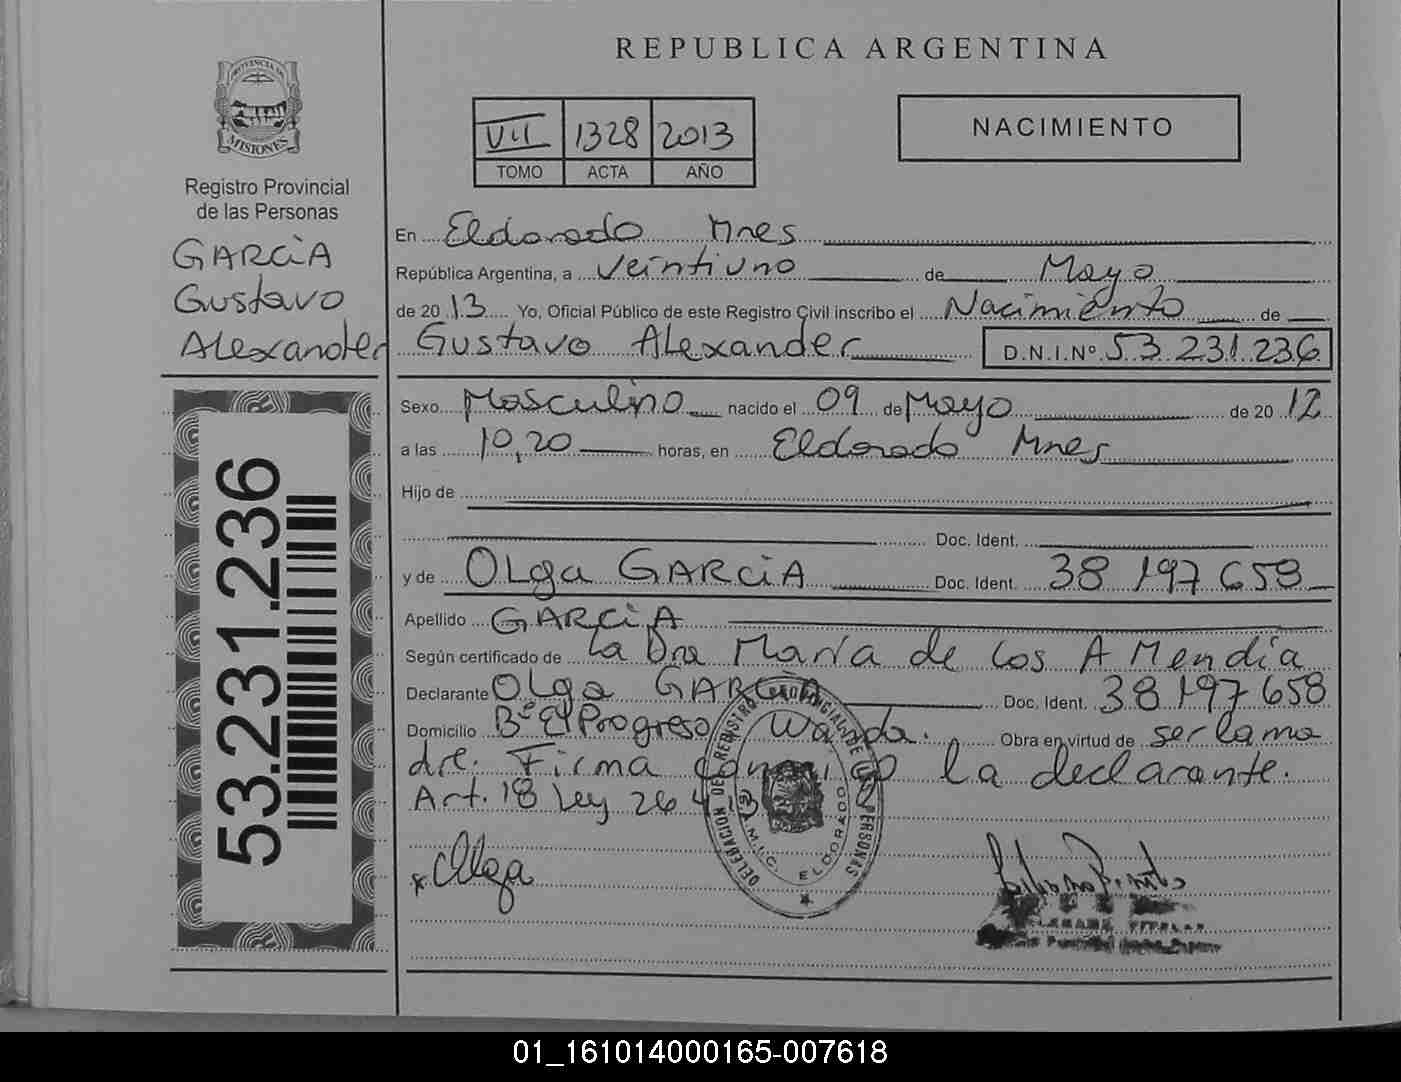 REPUBLICA ARGENTINA
PROVINCIA DE
MISIONES
Registro Provincial
de las Personas
GARCíA
Gustavo
Alexander
53.231.236
VII 1328 2013
TOMO ACTA AÑO
NACIMIENTO
En Eldorado Mnes
República Argentina, a Veintiuno de Mayo
de 20 13 Yo, Oficial Público de este Registro Civil inscribo el Nacimiento de
Gustavo Alexander D.N.I.Nº 53 231 236
Sexo Masculino nacido el 09 de Mayo de 20 12
a las 10,20 horas, en Eldorado Mnes
Hijo de
Doc. Ident.
y de Olga GARCíA Doc. Ident. 38 197 658
Apellido GARCíA
Según certificado de La Dra María de los A Mendía
Declarante Olga GARCíA Doc. Ident. 38 197 658
Domicilio Bº El Progreso Wanda. Obra en virtud de ser la ma
dre. Firma conmigo la declarante.
Art. 18 Ley 26 413
DELEGACION DEL REGISTRO PROVINCIAL DE LAS PERSONAS
ELDORADO
x Olga
01_161014000165-007618